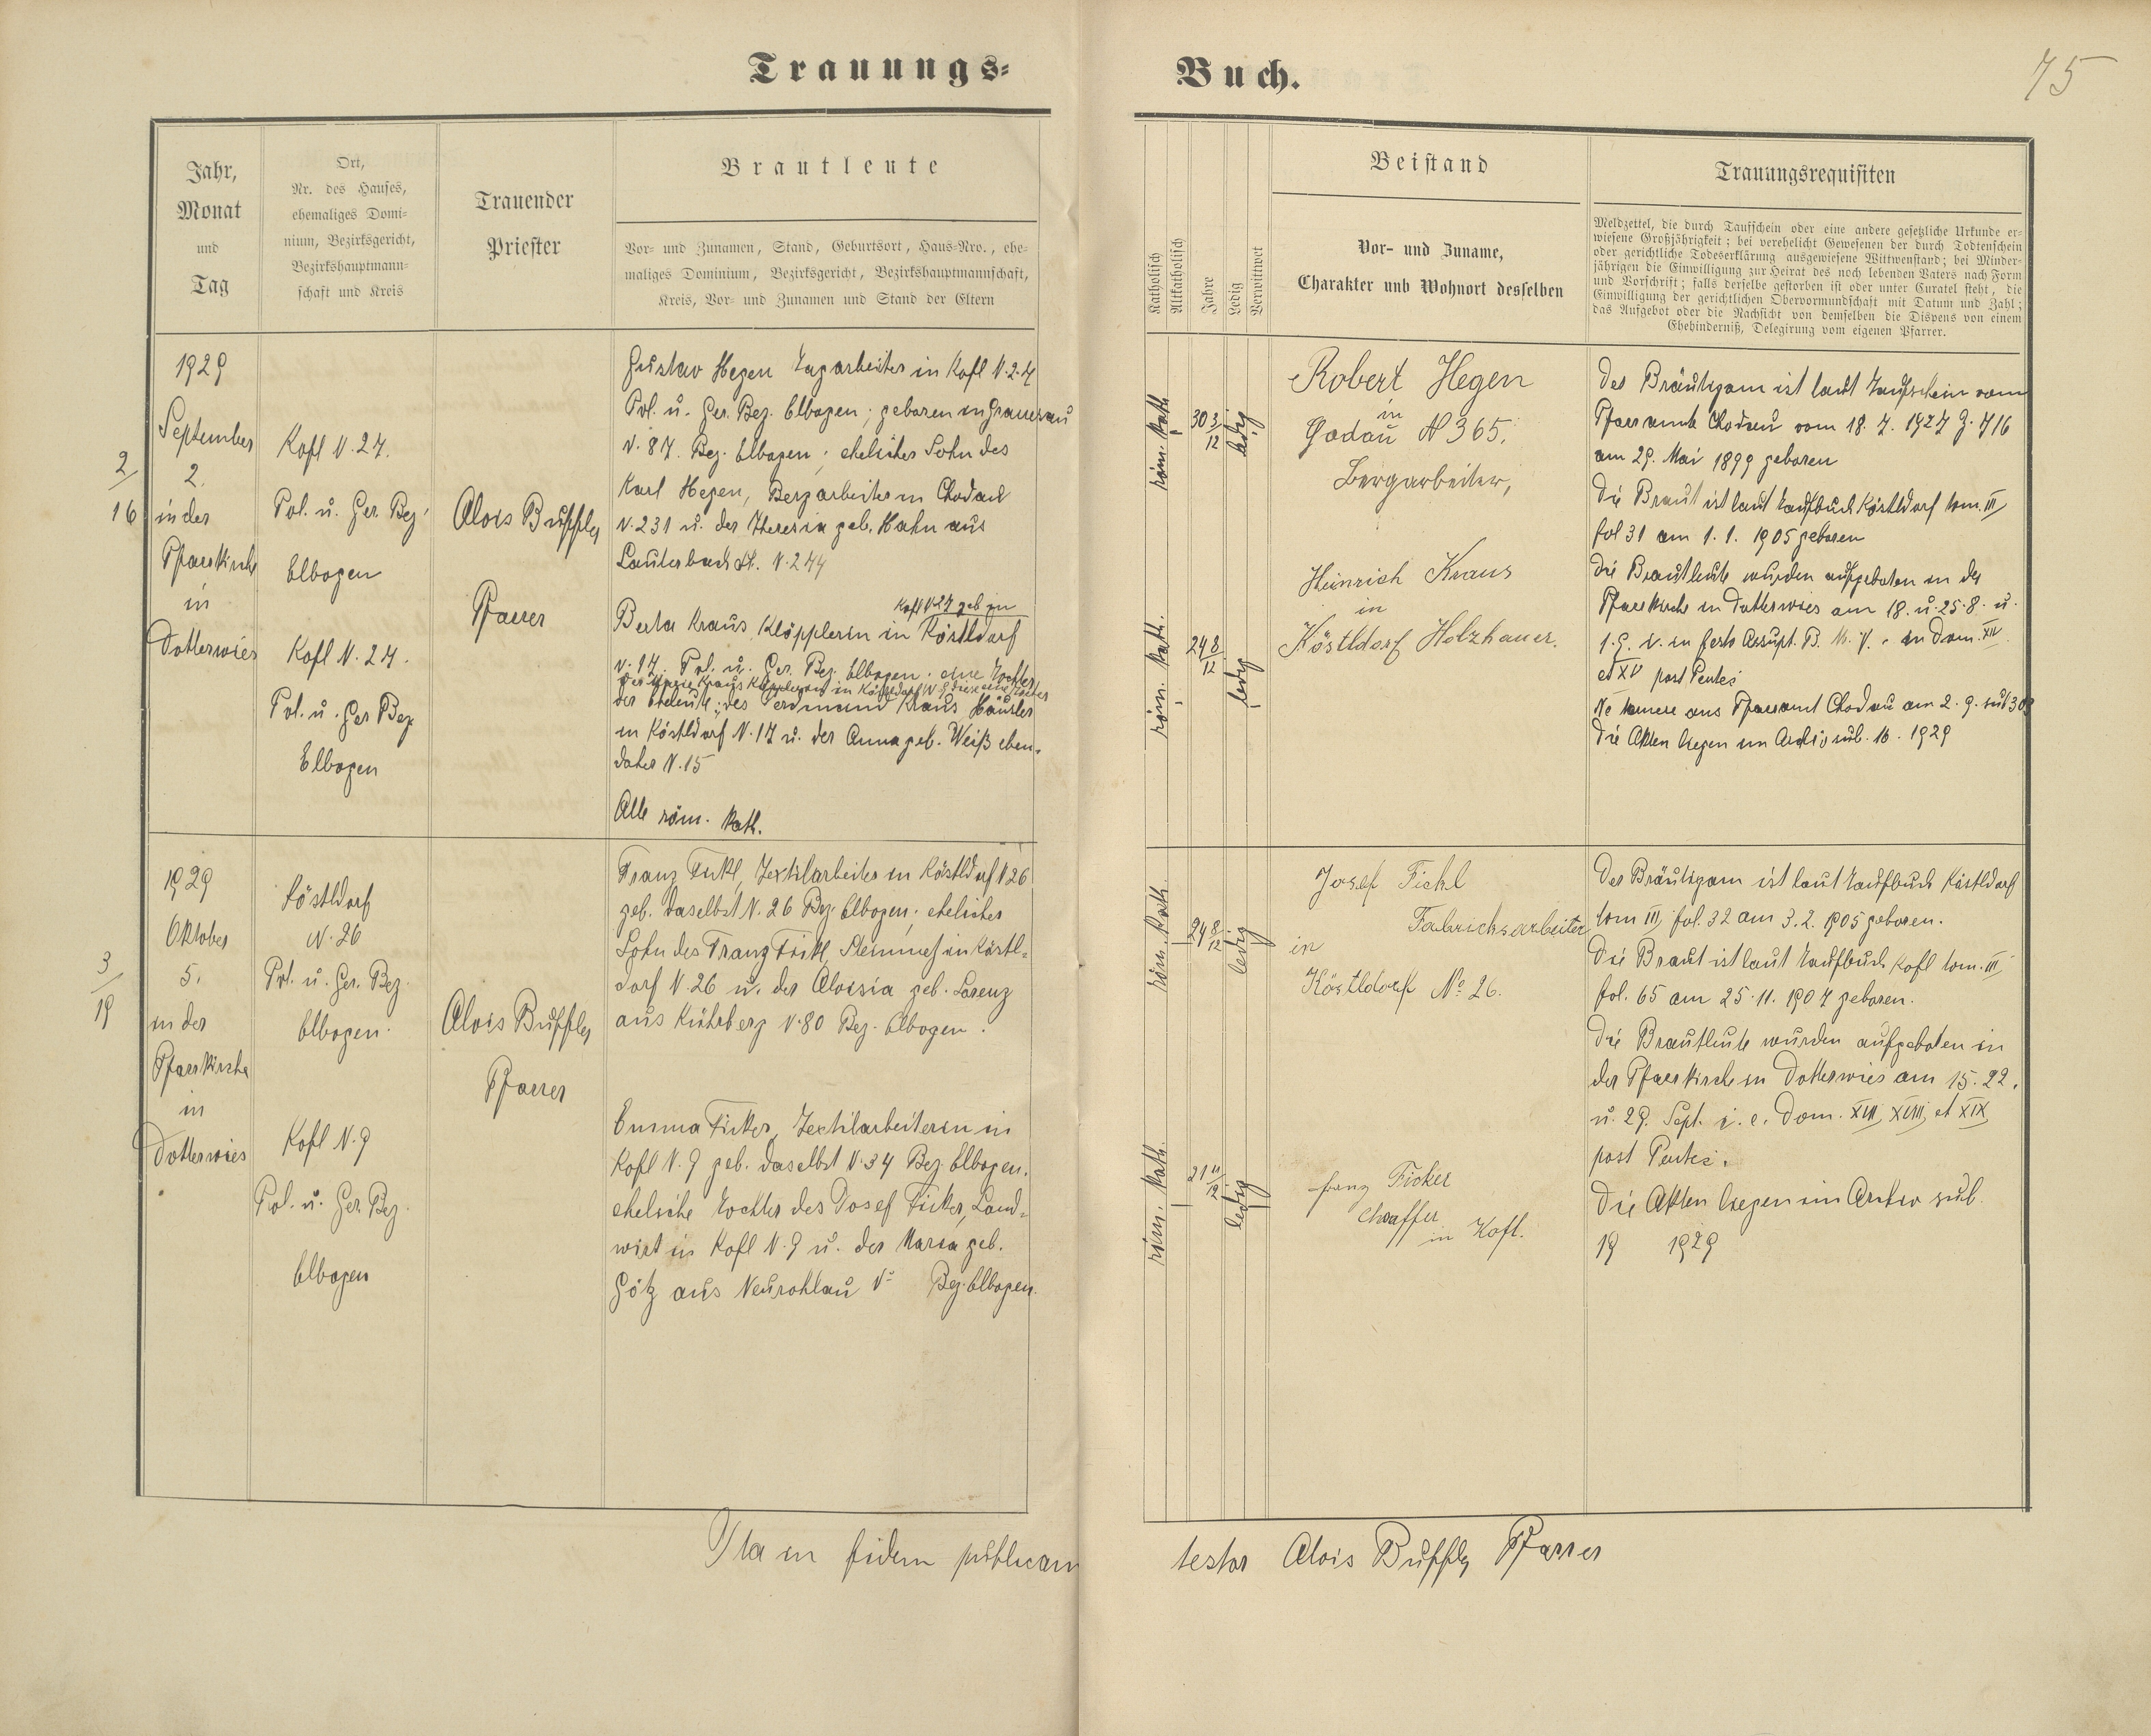 Trauungs-
Buch.
75
Jahr,
Monat
und
Tag
Ort,
Nr. des Hauses,
ehemaliges Domi-
nium, Bezirksgericht,
Bezirkshauptmann-
schaft und Kreis
Trauender
Priester
Brautleute
Vor- und Zunamen, Stand, Geburtsort, Haus-Nro., ehe-
maliges Dominium, Bezirksgericht, Bezirkshauptmannschaft,
Kreis, Vor- und Zunamen und Stand der Eltern
Katholisch
Altkatholisch
Jahre
Ledig
Verwittwet
Beistand
Vor- und Zuname,
Charakter und Wohnort desselben
Trauungsrequisiten
Meldzettel, die durch Taufschein oder eine andere gesetzliche Urkunde er-
wiesene Großjährigkeit; bei verehelicht Gewesenen der durch Todtenschein
oder gerichtliche Todeserklärung ausgewiesene Wittwenstand; bei Minder-
jährigen die Einwilligung zur Heirat des noch lebenden Vaters nach Form
und Vorschrift; falls derselbe gestorben ist oder unter Curatel steht, die
Einwilligung der gerichtlichen Obervormundschaft mit Datum und Zahl;
das Aufgebot oder die Nachsicht von demselben die Dispens von einem
Ehehinderniß, Delegirung vom eigenen Pfarrer.
2/16
1929
September
2.
in der
Pfarrkirche
in
Dotterwies
Kofl N. 27.
Pol. u. Ger. Bez.
Elbogen
Kofl N. 27.
Pol. u. Ger Bez
Elbogen
Alois Buffler
Pfarrer
Gustav Hegen Tagarbeiter in Kofl N. 27
Pol. u. Ger. Bez. Elbogen; geboren in Granesau
N. 87. Bez. Elbogen; ehelicher Sohn des
Karl Hegen, Bergarbeiter in Chodau
N. 231 u. der Theresia geb. Hahn aus
Lauterbach St. N. 244
Kofl N 27 geb in
Berta Kraus, Klöpplerin in Köstldorf
N. 17. Pol. u. Ger. Bez. Elbogen. eine Tochter
der Eheleute; des Ferdinand Kraus Häusler
in Köstldorf N. 17 u. der Anna geb. Weiß eben-
daher N. 15
Alle röm. kath.
röm. kath
30 3/12
ledig
röm. kath.
24 8/12
ledig
Robert Hegen
in
Godau N 365.
Bergarbeiter,
Heinrich Kraus
in
Köstldorf Holzhauer.
Der Bräutigam ist laut Taufschein vom
Pfarramte Chodau vom 18. 7. 1927 Z. 716
am 29. Mai 1899 geboren
Die Braut ist laut Taufbuch Köstldorf tom. III
fol 31 am 1. 1. 1905 geboren
Die Brautleute wurden aufgeboten in der
Pfarrkirche in Dotterwies am 18. u. 25. 8. u.
1. 9. i. in festo Assupt. B. M. V. in Dom. XIV
et XV post Pentec
Ne temere aus Pfarramt Chodau am 2. 9. sub
Die Akten liegen im Archiv sub. 16. 1929
3/19
1929
Oktober
5.
in der
Pfarrkirche
in
Dotterwies
Köstldorf
N. 26
Pol. u. Ger. Bez.
Elbogen.
Kofl N. 9
Pol. u. Ger. Bez.
Elbogen
Alois Buffler
Pfarrer
Franz Fickl, Textilarbeiter in Köstldorf N 26
geb. daselbst N. 26 Bez. Elbogen; ehelicher
Sohn des Franz Fickl, Steinmetz in Köstl-
dorf N. 26 u. der Aloisia geb. Lorenz
aus Kührberg N. 80 Bez. Elbogen.
Emma Ficker, Textilarbeiterin in
Kofl N. 9 geb. daselbst N. 34 Bez. Elbogen.
eheliche Tochter des Josef Ficker, Land-
wirt in Kofl N. 9 u. der Maria geb.
Götz aus Neurohlau N. Bez. Elbogen.
röm. kath.
24 8/12
ledig
röm. kath.
21 11/12
ledig
Josef Fickl
Fabrichsarbeiter
in
Köstldorf No 26.
franz Ficker
chaffer
in Kofl.
Der Bräutigam ist laut Taufbuch Köstldorf
tom III, fol. 32 am 3. 2. 1905 geboren.
Die Braut ist laut Taufbuch Kofl tom. III
fol. 65 am 25. 11. 1907 geboren.
Die Brautleute wurden aufgeboten in
der Pfarrkirche in Dotterwies am 15. 22.
u. 29. Sept. i. e. Dom. XVII, XVIII, et XIX
post Pentec.
Die Akten liegen im Archiv sub.
19 1929
Ita in fidem publicam
testor Alois Buffler Pfarrer